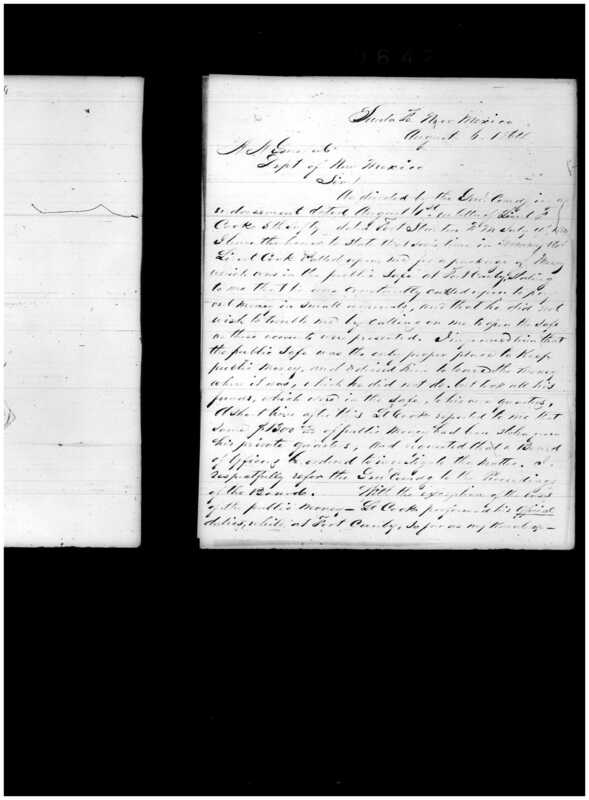 Santa Fe New Mexico
August 6. 1864
A A General
Dept of New Mexico
Sir!
As directed by the Genl Comdg in an
endorsement dated August 1st on letter of Lieut
Cook dated Fort
I have the honor to state that some time in
Lieut Cook called upon me for a package of Money
which was in the public Safe at Fort Canby, Stating
to me that he was constantly called upon to pay
out money in small amounts, and that he did not
wish to trouble me by calling on me to open the Safe
as these accounts were presented. I informed him that
the public Safe was the only proper place to Keep
public Money, and advised him to leave the Money
where it was, which he did not do, but took all his
funds, which were in the safe, to his own quarters,
A short time after this Lt Cook reported to me that
some $1300 of public Money had been stolen from
his private quarters, and requested that a Board
of Officers be ordered to investigate the matter. I
respectfully refer the Genl Comdg to the Proceedings
of the Board. With the exception of the loss
of the public Money — Lt Cook performed his official
duties, while at Fort Canby, so far as my